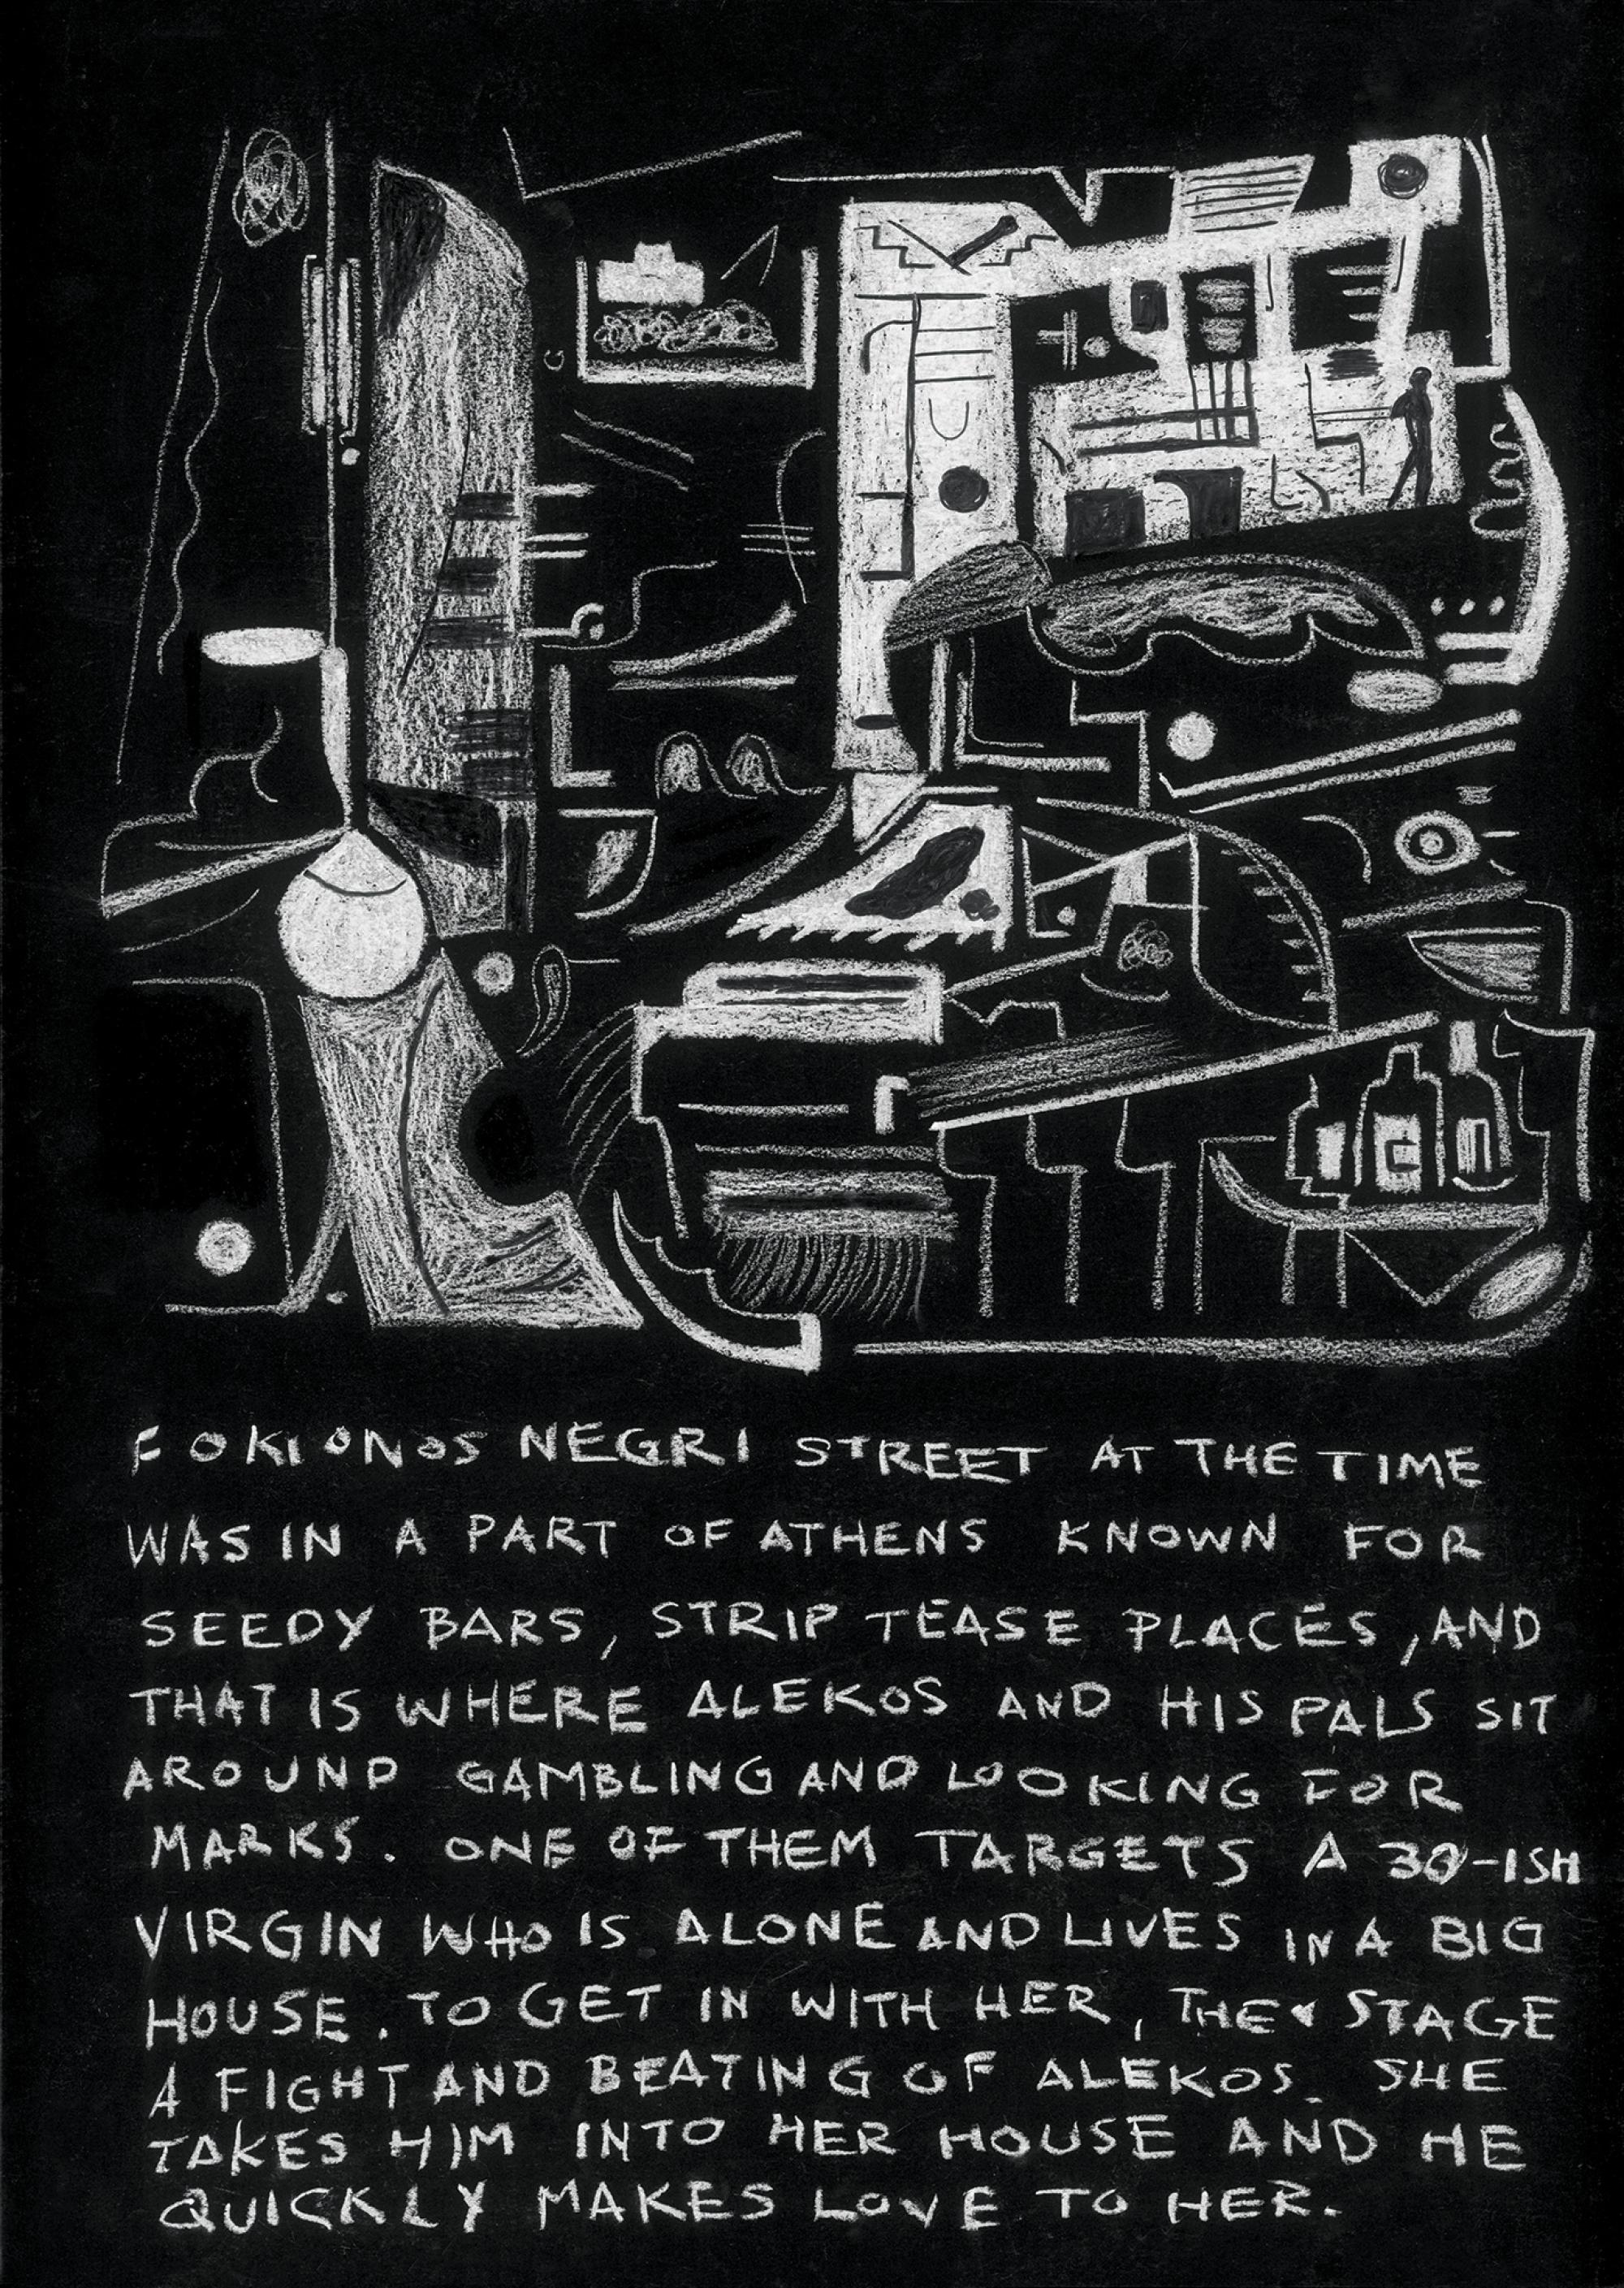 FOKIONOS NEGRI STREET AT THE TIME
WAS IN A PART OF ATHENS KNOWN FOR
SEEDY BARS, STRIP TEASE PLACES, AND
THAT IS WHERE ALEKOS AND HIS PALS SIT
AROUND GAMBLING AND LOOKING FOR
MARKS. ONE OF THEM TARGETS A 30-ISH
VIRGIN WHO IS ALONE AND LIVES IN A BIG
HOUSE. TO GET IN WITH HER, THEY STAGE
A FIGHT AND BEATING OF ALEKOS. SHE
TAKES HIM INTO HER HOUSE AND HE
QUICKLY MAKES LOVE TO HER.